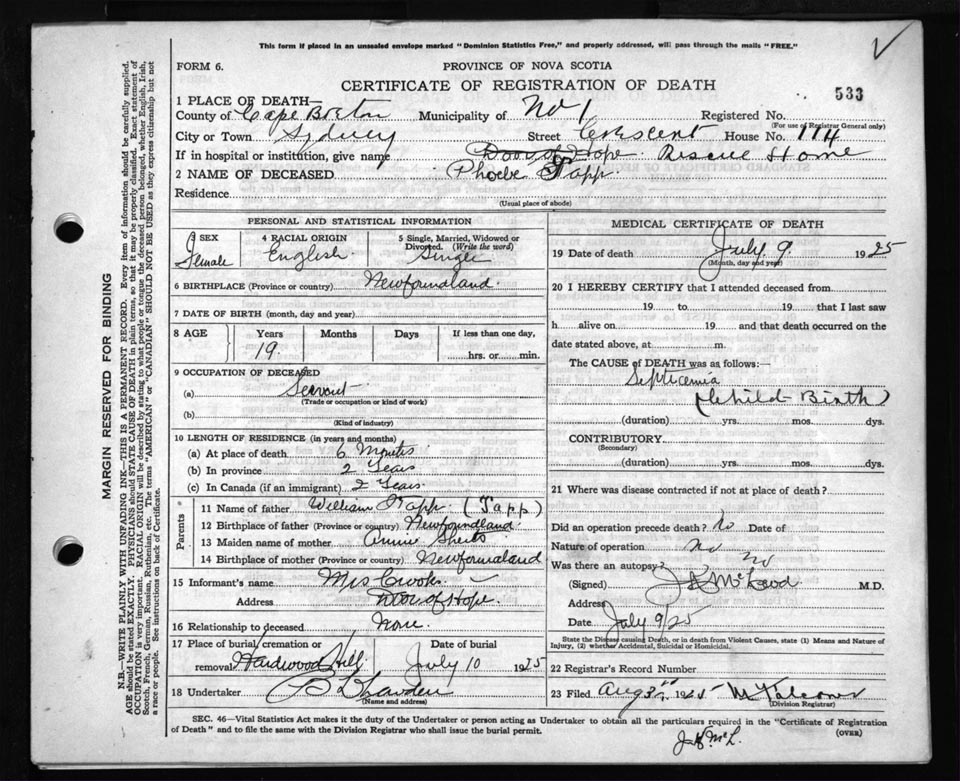 This form if placed in an unsealed envelope marked "Dominion Statistics Free," and properly addressed, will pass through the mails "FREE."
FORM 6.
PROVINCE OF NOVA SCOTIA
CERTIFICATE OF REGISTRATION OF DEATH
533
1 PLACE OF DEATH—
County of Cape Breton Municipality of No 1 Registered No.
(For use of Registrar General only)
City or Town Sydney Street Crescent House No. 114
If in hospital or institution, give name Door of Hope Rescue Home
2 NAME OF DECEASED Phoebe Tapp
Residence
(Usual place of abode)
PERSONAL AND STATISTICAL INFORMATION
3 SEX Female
4 RACIAL ORIGIN English
5 Single, Married, Widowed or Divorced. (Write the word) Single
6 BIRTHPLACE (Province or country) Newfoundland
7 DATE OF BIRTH (month, day and year)
8 AGE Years Months Days If less than one day,
19 hrs. or min.
9 OCCUPATION OF DECEASED
(a) Servant
(Trade or occupation or kind of work)
(b)
(Kind of industry)
10 LENGTH OF RESIDENCE (in years and months)
(a) At place of death 6 Months
(b) In province 2 Years
(c) In Canada (if an immigrant) 2 Years
Parents
11 Name of father William Tapp (Tapp)
12 Birthplace of father (Province or country) Newfoundland
13 Maiden name of mother Annie
14 Birthplace of mother (Province or country) Newfoundland
15 Informant's name Mrs Crooks
Address Door of Hope
16 Relationship to deceased None
17 Place of burial, cremation or removal Hardwood Hill
Date of burial July 10 1925
18 Undertaker
(Name and address)
MEDICAL CERTIFICATE OF DEATH
19 Date of death July 9 1925
(Month, day and year)
20 I HEREBY CERTIFY that I attended deceased from
19 to 19 that I last saw
h alive on 19 and that death occurred on
date stated above, at m.
The CAUSE of DEATH was as follows:
Septicemia
(Child Birth)
(duration) yrs. mos. dys.
CONTRIBUTORY
(Secondary)
(duration) yrs. mos. dys.
21 Where was disease contracted if not at place of death?
Did an operation precede death? No Date of
Nature of operation no
Was there an autopsy? no
(Signed) M.D.
Address
Date July 9/25
State the Disease causing Death, or in death from Violent Causes, state (1) Means and Nature of Injury, (2) whether Accidental, Suicidal or Homicidal.
22 Registrar's Record Number
23 Filed Aug 3 1925
(Division Registrar)
SEC. 46—Vital Statistics Act makes it the duty of the Undertaker or person acting as Undertaker to obtain all the particulars required in the "Certificate of Registration
of Death" and to file the same with the Division Registrar who shall issue the burial permit.
(OVER)
MARGIN RESERVED FOR BINDING
N.B.—WRITE PLAINLY WITH UNFADING INK—THIS IS A PERMANENT RECORD. Every item of information should be carefully supplied.
AGE should be stated EXACTLY. PHYSICIANS should STATE CAUSE OF DEATH in plain terms, so that it may be properly classified. Exact statement of
OCCUPATION is very important. RACIAL ORIGIN will be described by stating to what people or tongue the deceased person belonged, whether English, Irish,
Scotch, French, German, Russian, Ruthenian, etc. The terms "AMERICAN" or "CANADIAN" SHOULD NOT BE USED as they express citizenship but not
a race or people. See instructions on back of Certificate.